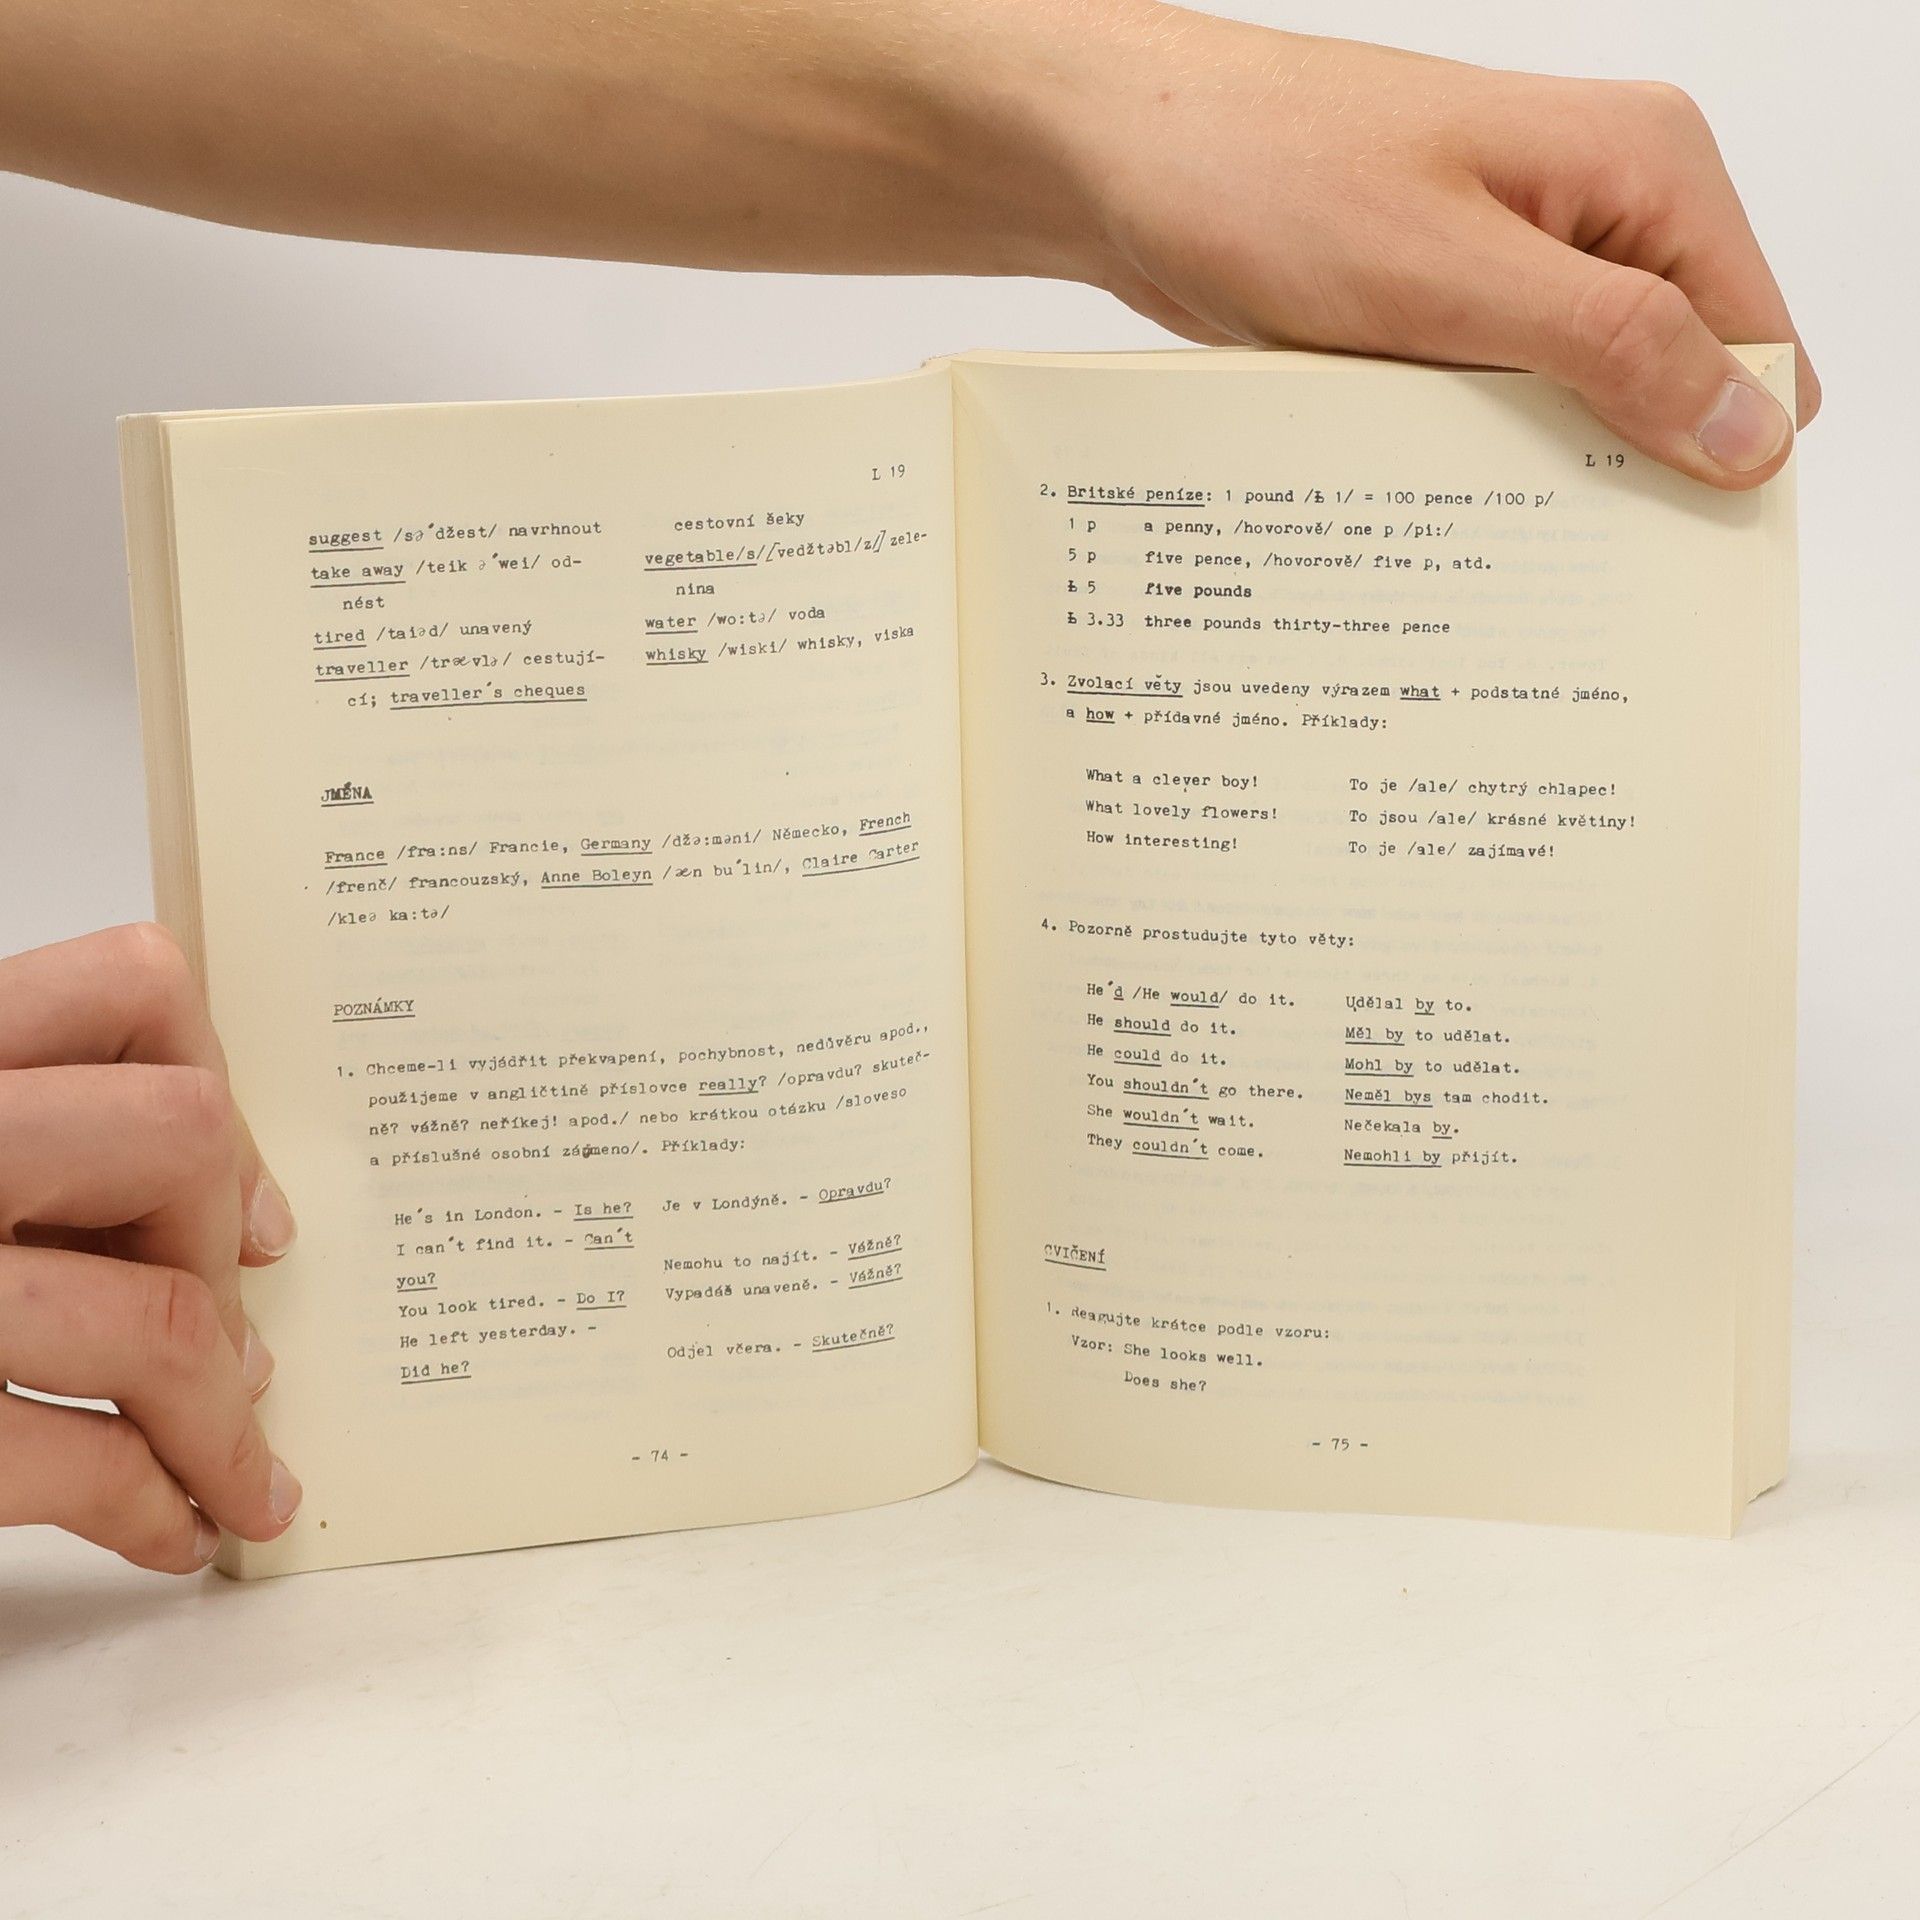 L 19
suggest /sə´džest/ navrhnout
take away /teik ə´wei/ od-
nést
tired /taiəd/ unavený
traveller /trævlə/ cestují-
cí; traveller´s cheques
cestovní šeky
vegetable/s/ /[vedžtəbl/z/] zele-
nina
water /wo:tə/ voda
whisky /wiski/ whisky, viska
JMÉNA
France /fra:ns/ Francie, Germany /džə:məni/ Německo, French
/frenč/ francouzský, Anne Boleyn /æn bu´lin/, Claire Carter
/kleə ka:tə/
POZNÁMKY
1. Chceme-li vyjádřit překvapení, pochybnost, nedůvěru apod.,
použijeme v angličtině příslovce really? /opravdu? skuteč-
ně? vážně? neříkej! apod./ nebo krátkou otázku /sloveso
a příslušné osobní zájmeno/. Příklady:
He´s in London. - Is he?
I can´t find it. - Can´t
you?
You look tired. - Do I?
He left yesterday. -
Did he?
Je v Londýně. - Opravdu?
Nemohu to najít. - Vážně?
Vypadáš unaveně. - Vážně?
Odjel včera. - Skutečně?
- 74 -
L 19
2. Britské peníze: 1 pound /₤ 1/ = 100 pence /100 p/
1 p a penny, /hovorově/ one p /pi:/
5 p five pence, /hovorově/ five p, atd.
₤ 5 five pounds
₤ 3.33 three pounds thirty-three pence
3. Zvolací věty jsou uvedeny výrazem what + podstatné jméno,
a how + přídavné jméno. Příklady:
What a clever boy! To je /ale/ chytrý chlapec!
What lovely flowers! To jsou /ale/ krásné květiny!
How interesting! To je /ale/ zajímavé!
4. Pozorně prostudujte tyto věty:
He´d /He would/ do it. Udělal by to.
He should do it. Měl by to udělat.
He could do it. Mohl by to udělat.
You shouldn´t go there. Neměl bys tam chodit.
She wouldn´t wait. Nečekala by.
They couldn´t come. Nemohli by přijít.
CVIČENÍ
1. Reagujte krátce podle vzoru:
Vzor: She looks well.
Does she?
- 75 -